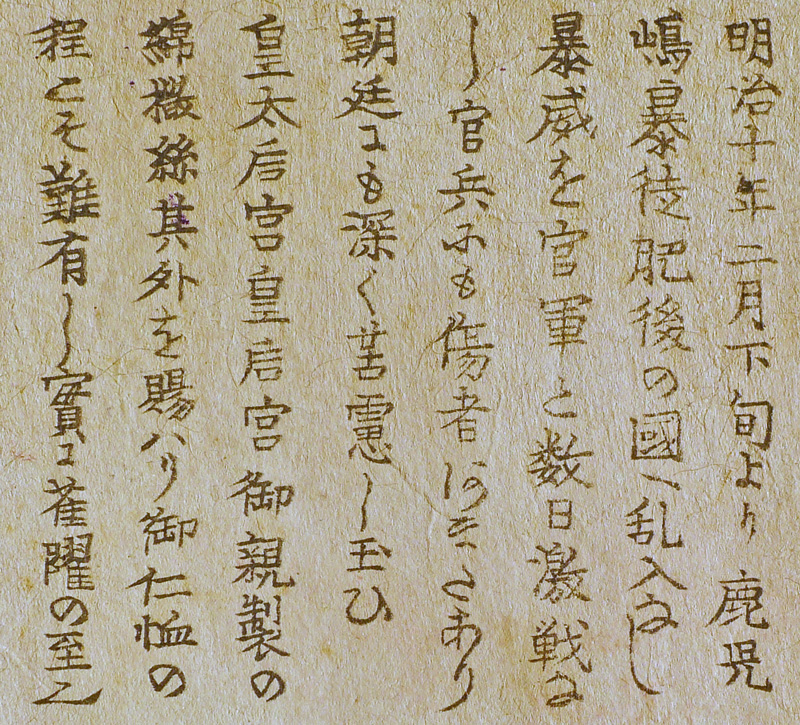 明治十年二月下旬より鹿児
嶋暴徒肥後の國へ乱入なし
暴威を官軍と数日激戦な
し官兵にも傷者あまたあり
朝廷にも深く苦慮し玉ひ
皇太后宮皇后宮御親製の
綿撒絲其外を賜ハり御仁恤の
程こそ難有し實に雀躍の至也